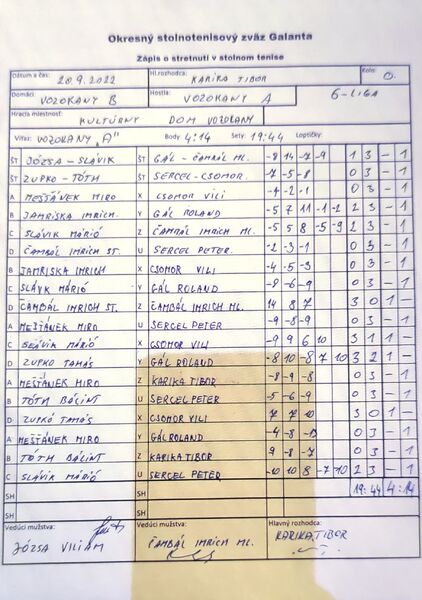 Okresný stolnotenisový zväz Galanta
Zápis o stretnutí v stolnom tenise
Dátum a čas: 20.9.2022 Hl.rozhodca: KARIKA TIBOR Kolo: 0.
Domáci: VOZOKANY B Hostia: VOZOKANY A 6-LIGA
Hracia miestnosť: KULTÚRNY DOM VOZOKANY
Víťaz: VOZOKANY "A" Body 4:14 Sety: 19:44 Loptičky:
ŠT JÓZSA-SLÁVIK ŠT GÁL-ČAMBÁL ML. -8 14 -7 -9 1 3 - 1
ŠT ZUPKO-TÓTH ŠT SERCEL-CSOMOR. -7 -5 -8 0 3 - 1
A MEŠŤÁNEK MIRO X CSOMOR VILI -4 -2 -1 0 3 - 1
B JAMRIŠKA IMRICH. Y GÁL ROLAND -5 7 11 -1 -2 2 3 - 1
C SLÁVIK MÁRIÓ Z ČAMBÁL IMRICH ML -5 5 8 -5 -9 2 3 - 1
D ČAMBÁL IMRICH ST. U SERCEL PETER. -2 -3 -1 0 3 - 1
B JAMRIŠKA IMRICH X CSOMOR VILI -4 -5 -3 0 3 - 1
C SLÁVIK MÁRIÓ Y GÁL ROLAND -8 -6 -9 0 3 - 1
D ČAMBÁL IMRICH ST. Z ČAMBÁL IMRICH ML. 14 8 7 3 0 1 -
A MEŠŤÁNEK MIRO U SERCEL PETER -9 -8 -9 0 3 - 1
C SLÁVIK MÁRIÓ X CSOMOR VILI -9 9 6 10 3 1 1 -
D ZUPKO TAMÁS Y GÁL ROLAND -8 10 -8 7 10 3 2 1 -
A MEŠŤÁNEK MIRO Z KARIKA TIBOR -8 -9 -8 0 3 - 1
B TÓTH BÁLINT U SERCEL PETER -5 -6 -9 0 3 - 1
D ZUPKO TAMÁS X CSOMOR VILI 7 7 10 3 0 1 -
A MEŠŤÁNEK MIRO Y GÁL ROLAND -4 -8 0 3 - 1
B TÓTH BÁLINT Z KARIKA TIBOR 9 -8 -7 0 3 - 1
C SLÁVIK MÁRIÓ U SERCEL PETER -10 10 8 -7 10 2 3 - 1
SH SH 19:44 4:14
SH SH
Vedúci mužstva: Vedúci mužstva: Hlavný rozhodca:
JÓZSA VILIAM ČAMBÁL IMRICH ML. KARIKA TIBOR